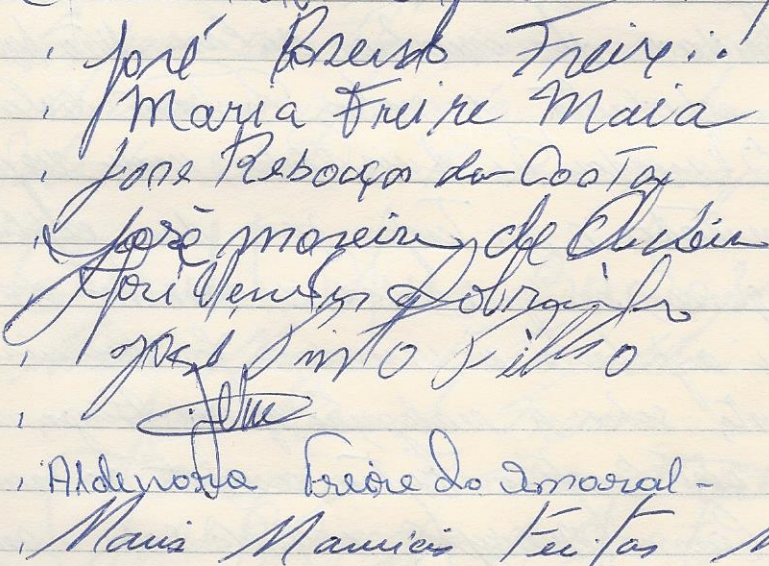 José Rosendo Freire
Maria Freire Maia
José Rebouças da Costa
José Moreira de Oliveira
José Sobrinho
José Pinto Filho
Aldenora Freire do Amaral -
Maria Freitas